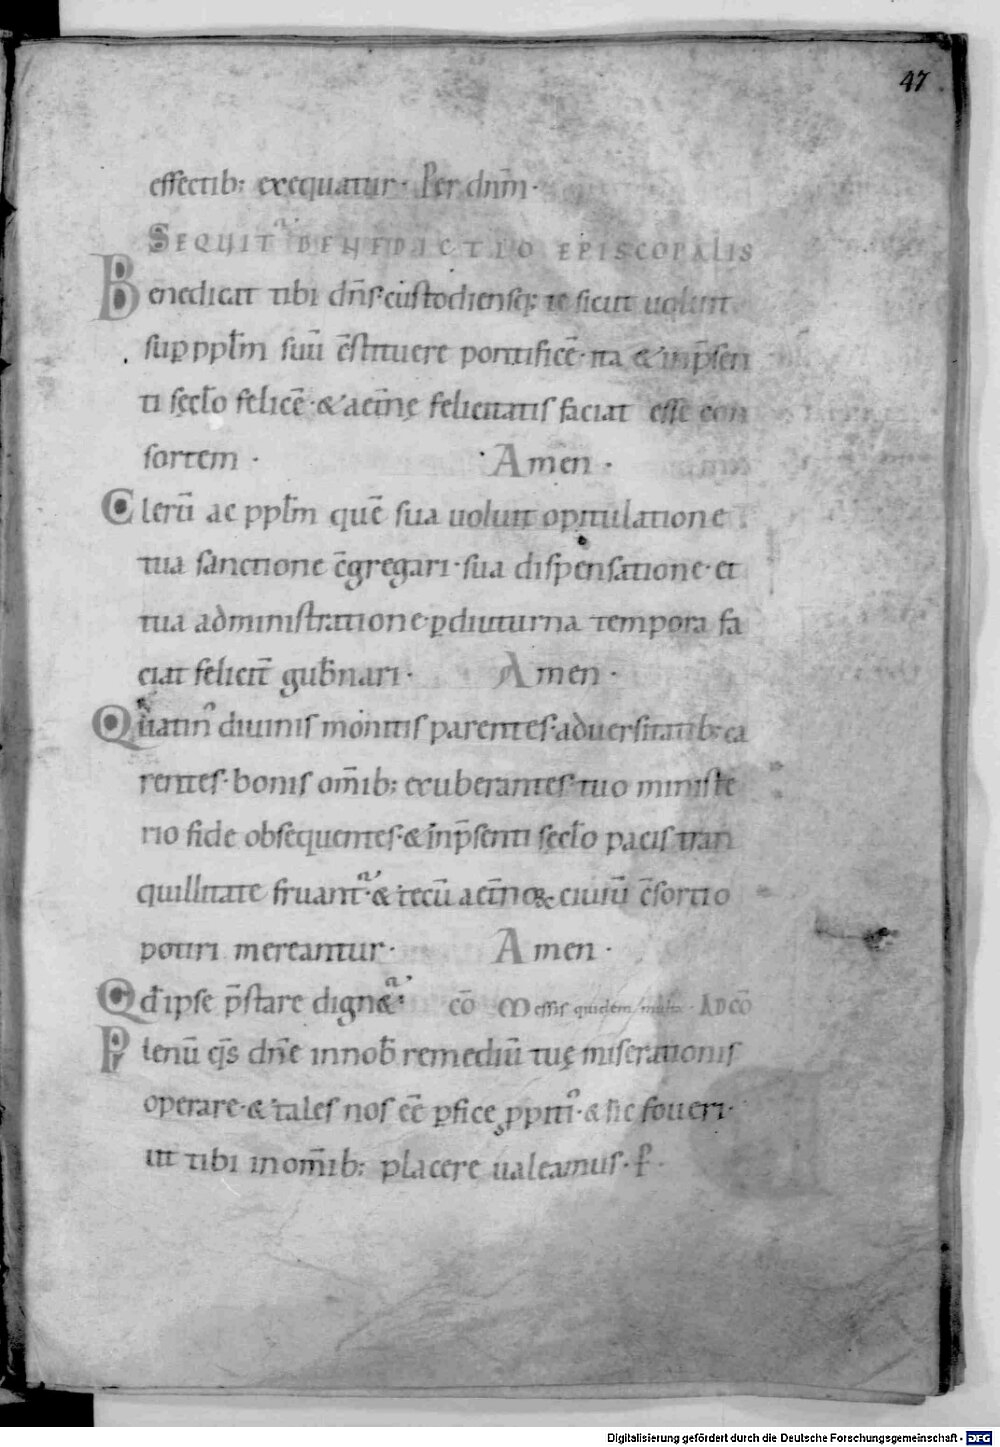 47
effectib; exequatur· Per dn̄m·
SEQUITᷓ BENEDICTIO EPISCOPALIS
Benedicat tibi dn̄s· custodiensq; te sicut uoluit
sup ppl̄m suū c̄stituere pontificē· ita & inp̄sen
ti sęcl̄o felicē· & aet̄nę felicitatis faciat esse con
sortem · Amen ·
Clerū ac ppl̄m quē sua uoluit opitulatione
tua sanctione c̄gregari· sua dispensatione· et
tua administratione· ꝑdiuturna tempora fa
ciat felicit̄ gub̄nari· Amen ·
Quatinꝰ diuinis monitis parentes· aduersitatib; ca
rentes· bonis om̄ib; exuberantes· tuo ministe
rio fide obsequentes· & inp̄senti sęcl̄o pacis tran
quillitate fruantᷓ· & tecū aet̄noꝝ ciuiū c̄sortio
potiri mereantur· Amen ·
Qd̄ ipse p̄stare dign&ᷓ· cō Messis quidem multa · AD cō
Plenū qs̄ dn̄e innob̄ remediū tuę miserationis
operare· & tales nos ee̅ ꝑfice ppitiꝰ· & sic foueri·
ut tibi inom̄ib; placere ualeamus· P̄ ·
Digitalisierung gefördert durch die Deutsche Forschungsgemeinschaft - DFG